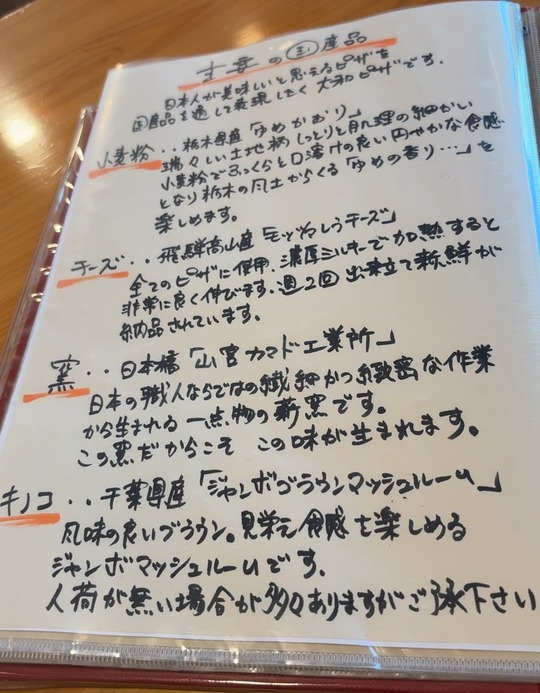 主要の国産品
日本人が美味しいと思えるピザを
国産品を通して表現したく大和ピザです.
小麦粉・・栃木県産「ゆめかおり」
瑞々しい土地柄しっとりと肌理の細かい
小麦粉でふっくらと口溶けの良い円やかな食感
となり栃木の風土からくる「ゆめの香り…」を
楽しめます。
チーズ・・飛騨高山産「モッツァレラチーズ」
全てのピザに使用.濃厚ミルキーで加熱すると
非常に良く伸びます.週2回出来立て新鮮が
納品されています.
窯・・日本橋「山宮カマド工業所」
日本の職人ならではの繊細かつ緻密な作業
から生まれる一点物の薪窯です。
この窯だからこそ この味が生まれます。
キノコ・・千葉県産「ジャンボブラウンマッシュルーム」
風味の良いブラウン。見栄え食感を楽しめる
ジャンボマッシュルームです.
入荷が無い場合が多々ありますがご了承下さい